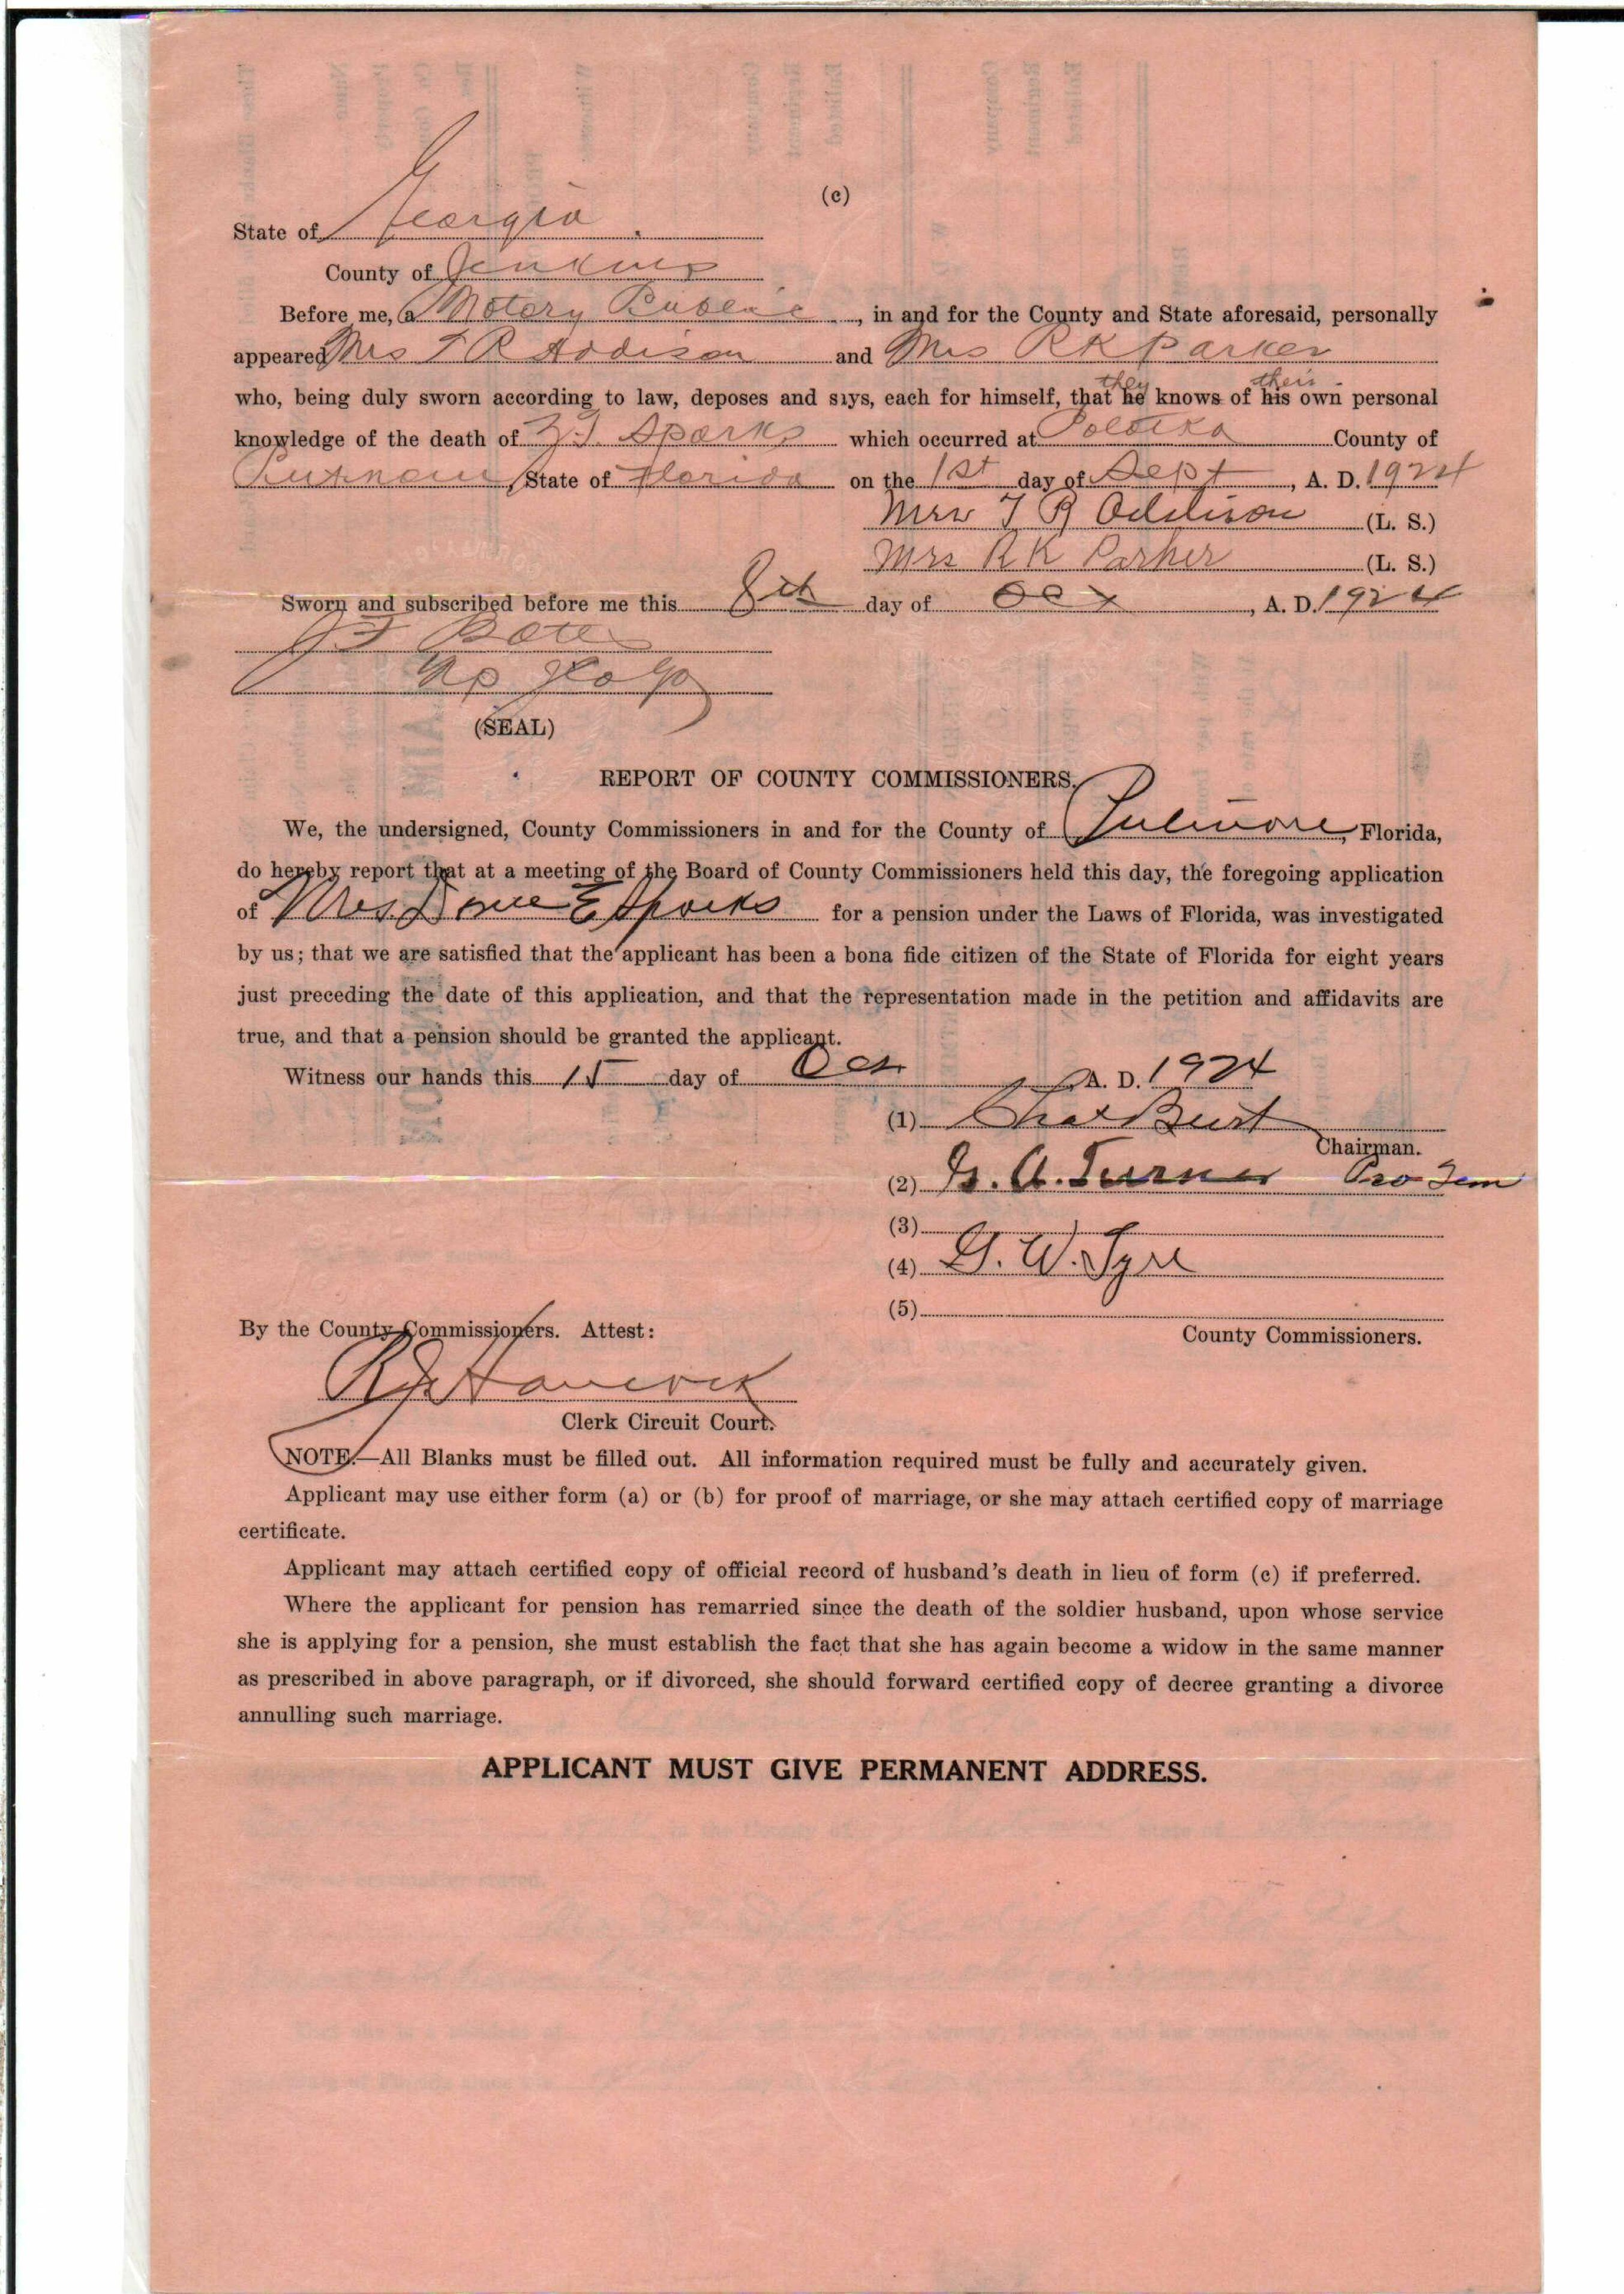 (c)
State of Georgia
County of Jenkins
Before me, a Notary Public, in and for the County and State aforesaid, personally
appeared Mrs T R Addison and Mrs R K Parker
they their
who, being duly sworn according to law, deposes and says, each for himself, that he knows of his own personal
knowledge of the death of Z. T. Sparks which occurred at Palatka County of
Putnam, State of Florida on the 1st day of Sept, A. D. 1924
Mrs T R Addison (L. S.)
Mrs R K Parker (L. S.)
Sworn and subscribed before me this 8th day of Oct, A. D. 1924
J F
NP
(SEAL)
REPORT OF COUNTY COMMISSIONERS.
We, the undersigned, County Commissioners in and for the County of Putnam, Florida,
do hereby report that at a meeting of the Board of County Commissioners held this day, the foregoing application
of Mrs. E Sparks for a pension under the Laws of Florida, was investigated
by us; that we are satisfied that the applicant has been a bona fide citizen of the State of Florida for eight years
just preceding the date of this application, and that the representation made in the petition and affidavits are
true, and that a pension should be granted the applicant.
Witness our hands this 15 day of Oct A. D. 1924
(1) Chas Burt
Chairman.
(2) G. A. Turner Pro Tem
(3)
(4) G. W. Tyre
(5)
By the County Commissioners. Attest:
County Commissioners.
R J Hancock
Clerk Circuit Court.
NOTE.—All Blanks must be filled out. All information required must be fully and accurately given.
Applicant may use either form (a) or (b) for proof of marriage, or she may attach certified copy of marriage
certificate.
Applicant may attach certified copy of official record of husband's death in lieu of form (c) if preferred.
Where the applicant for pension has remarried since the death of the soldier husband, upon whose service
she is applying for a pension, she must establish the fact that she has again become a widow in the same manner
as prescribed in above paragraph, or if divorced, she should forward certified copy of decree granting a divorce
annulling such marriage.
APPLICANT MUST GIVE PERMANENT ADDRESS.